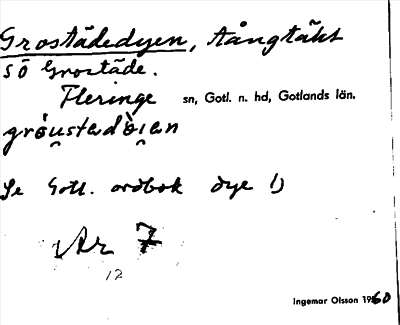 Grostädedyen, tångtäkt
SÖ Grostäde.
Fleringe sn, Gotl. n. hd, Gotlands län.
gròustadò̯i̯an
Se Gotl. ordbok dye 1)
Ar 7
12
Ingemar Olsson 1960